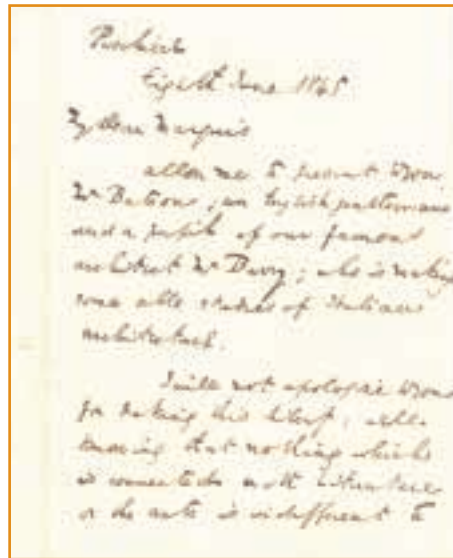 Eighth June 1865
My dear Marquis
allow me to present to you
Mr Batione, an English gentleman
and a pupil of our famous
architect Mr Barry; who is making
some able studies of Italian
architecture.
I will not apologise to you
for taking this liberty; well
knowing that nothing which
is connected with literature
or the arts is indifferent to